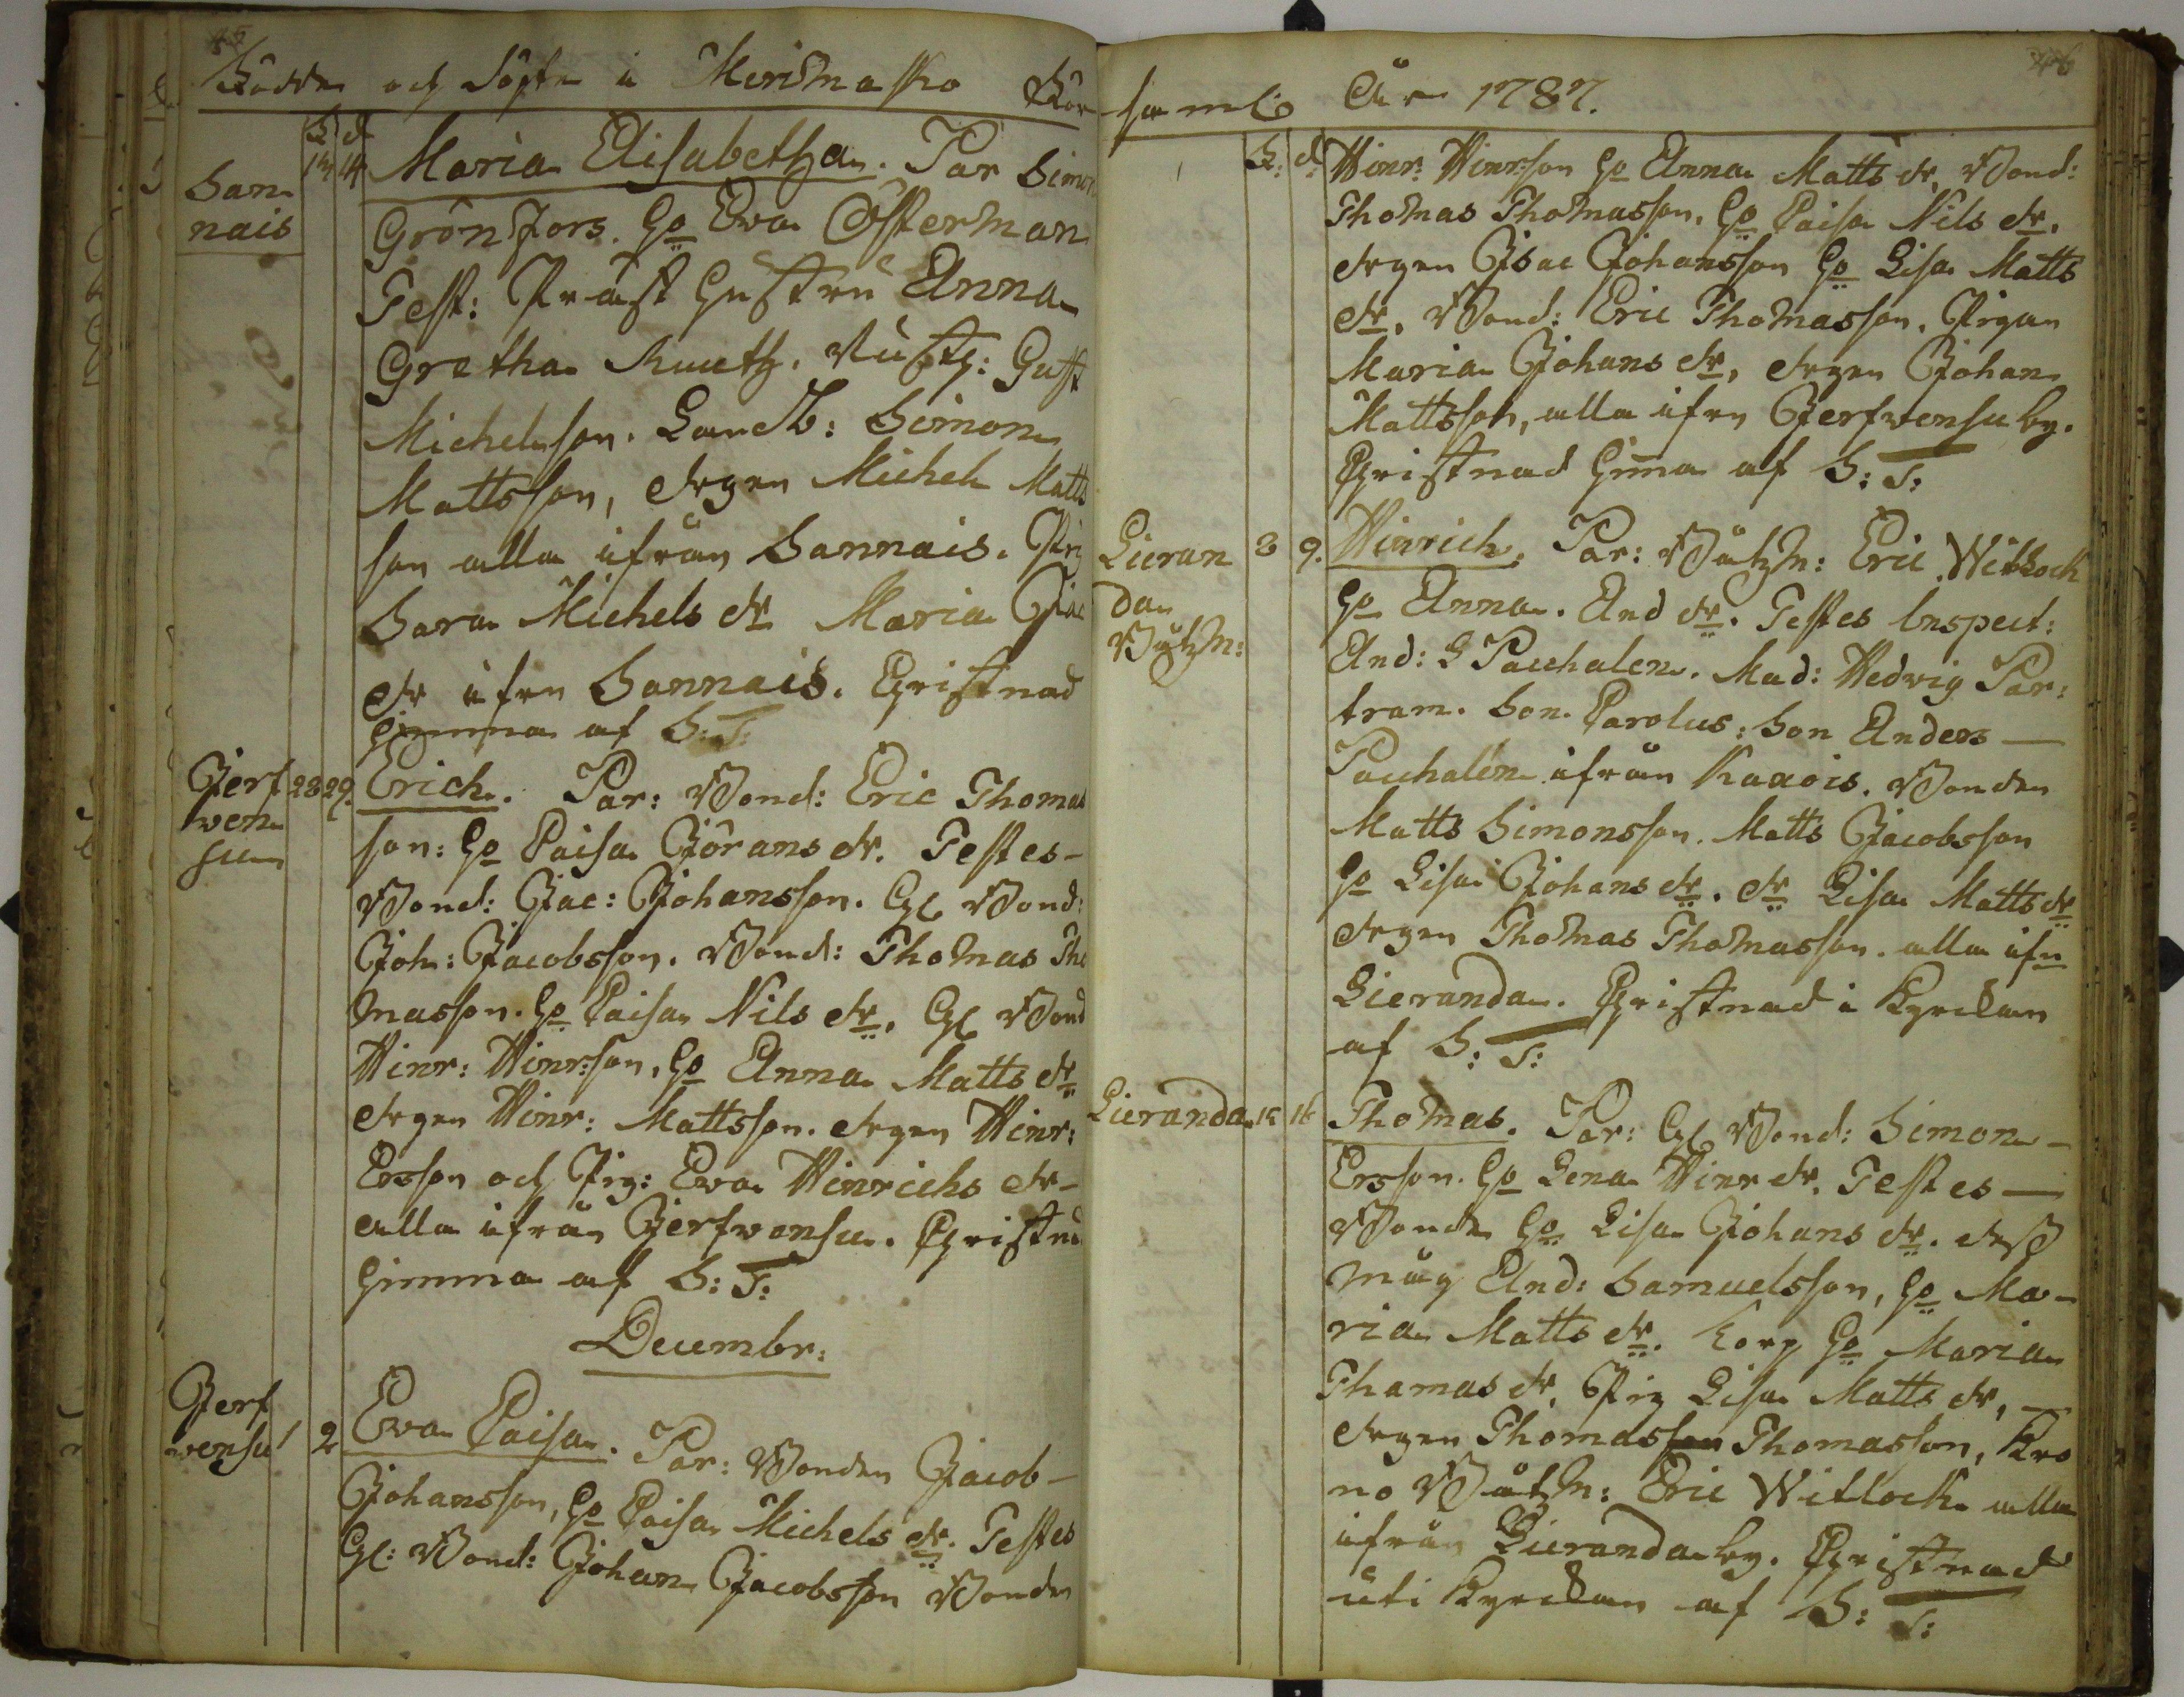 45
Födde och Döpte i Merimasko För
F d
San
nais
13 14 Maria Elisabetha. Par Simon
Grönfors. Ho Eva Österman
Test: Präst Hustru Anna
Gretha Rusth: Gust
Michelsson. Landtb: Simon
Mattsson, drgen Michel Matts
son alla ifrån Sannais. Pig
Sara Michels dr Maria Jac
dr ifrn Sannais. Christnad
hemma af S: T:
Jerf
ven
suu
28 29. Erich. Par: Bond: Eric Thomas
son: Ho Caisa Jörans dr. Testes
Bond: Jac: Johansson. Gl Bond:
Joh: Jacobsson. Bond: Thomas Tho
masson. Ho Caisa Nils dr. Gl Bond
Hinr: Hinrsson, Ho Anna Matts dr
drgen Hinr: Mattsson. drgen Hinr:
Ersson och Pig: Eva Hinrichs dr
alla ifrån Jerfvensuu. Christnad
hemma af S: T:
Decembr:
Jerf
vensu
2 Eva Caisa. Par: Bonden Jacob
Johansson, Ho Caisa Michels dr. Testes
Gl: Bond: Johan Jacobsson Bonden
46
saml: År 1787.
F: d: Hinr: Hinrsson Ho Anna Matts dr, Bond:
Thomas Thomasson. Ho Caisa Nils dr.
drgen Isac Johansson Ho Lisa Matts
dr. Bond: Eric Thomasson. Pigan
Maria Johans dr, drgen Johan
Mattsson, alla ifrn Jerfvensu by.
Christnad hema af S: T:
Lieran
da
8 9. Hinrich. Par: Eric Witlock
Ho Anna And dr. Testes Inspect:
And: G Pacchalen. Mad: Hedvig Par:
tram. Son Carolus: Son Anders
Pacchalen ifrån Kaxois. Bonden
Matts Simonsson. Matts Jacobsson
Ho Lisa Johans dr. dr Lisa Matts dr
drgen Thomas Thomasson. alla ifrn
Lieranda. Christnad i Kyrckan
af S: T:
Lieranda 15 16 Thomas. Par: Gl Bond: Simon
Ersson. Ho Lena Hinr dr. Testes
Bonde Ho Lisa Johans dr. dess
måg And: Samuelsson, Ho Ma-
ria Matts dr. Torp Ho Maria
Thomas dr, Pig Lisa Matts dr,
drgen Thomasson Thomasson, Kro
no Eric Witlock alla
ifrån Lieranda by. Christnad
uti Kyrckan af S: T: